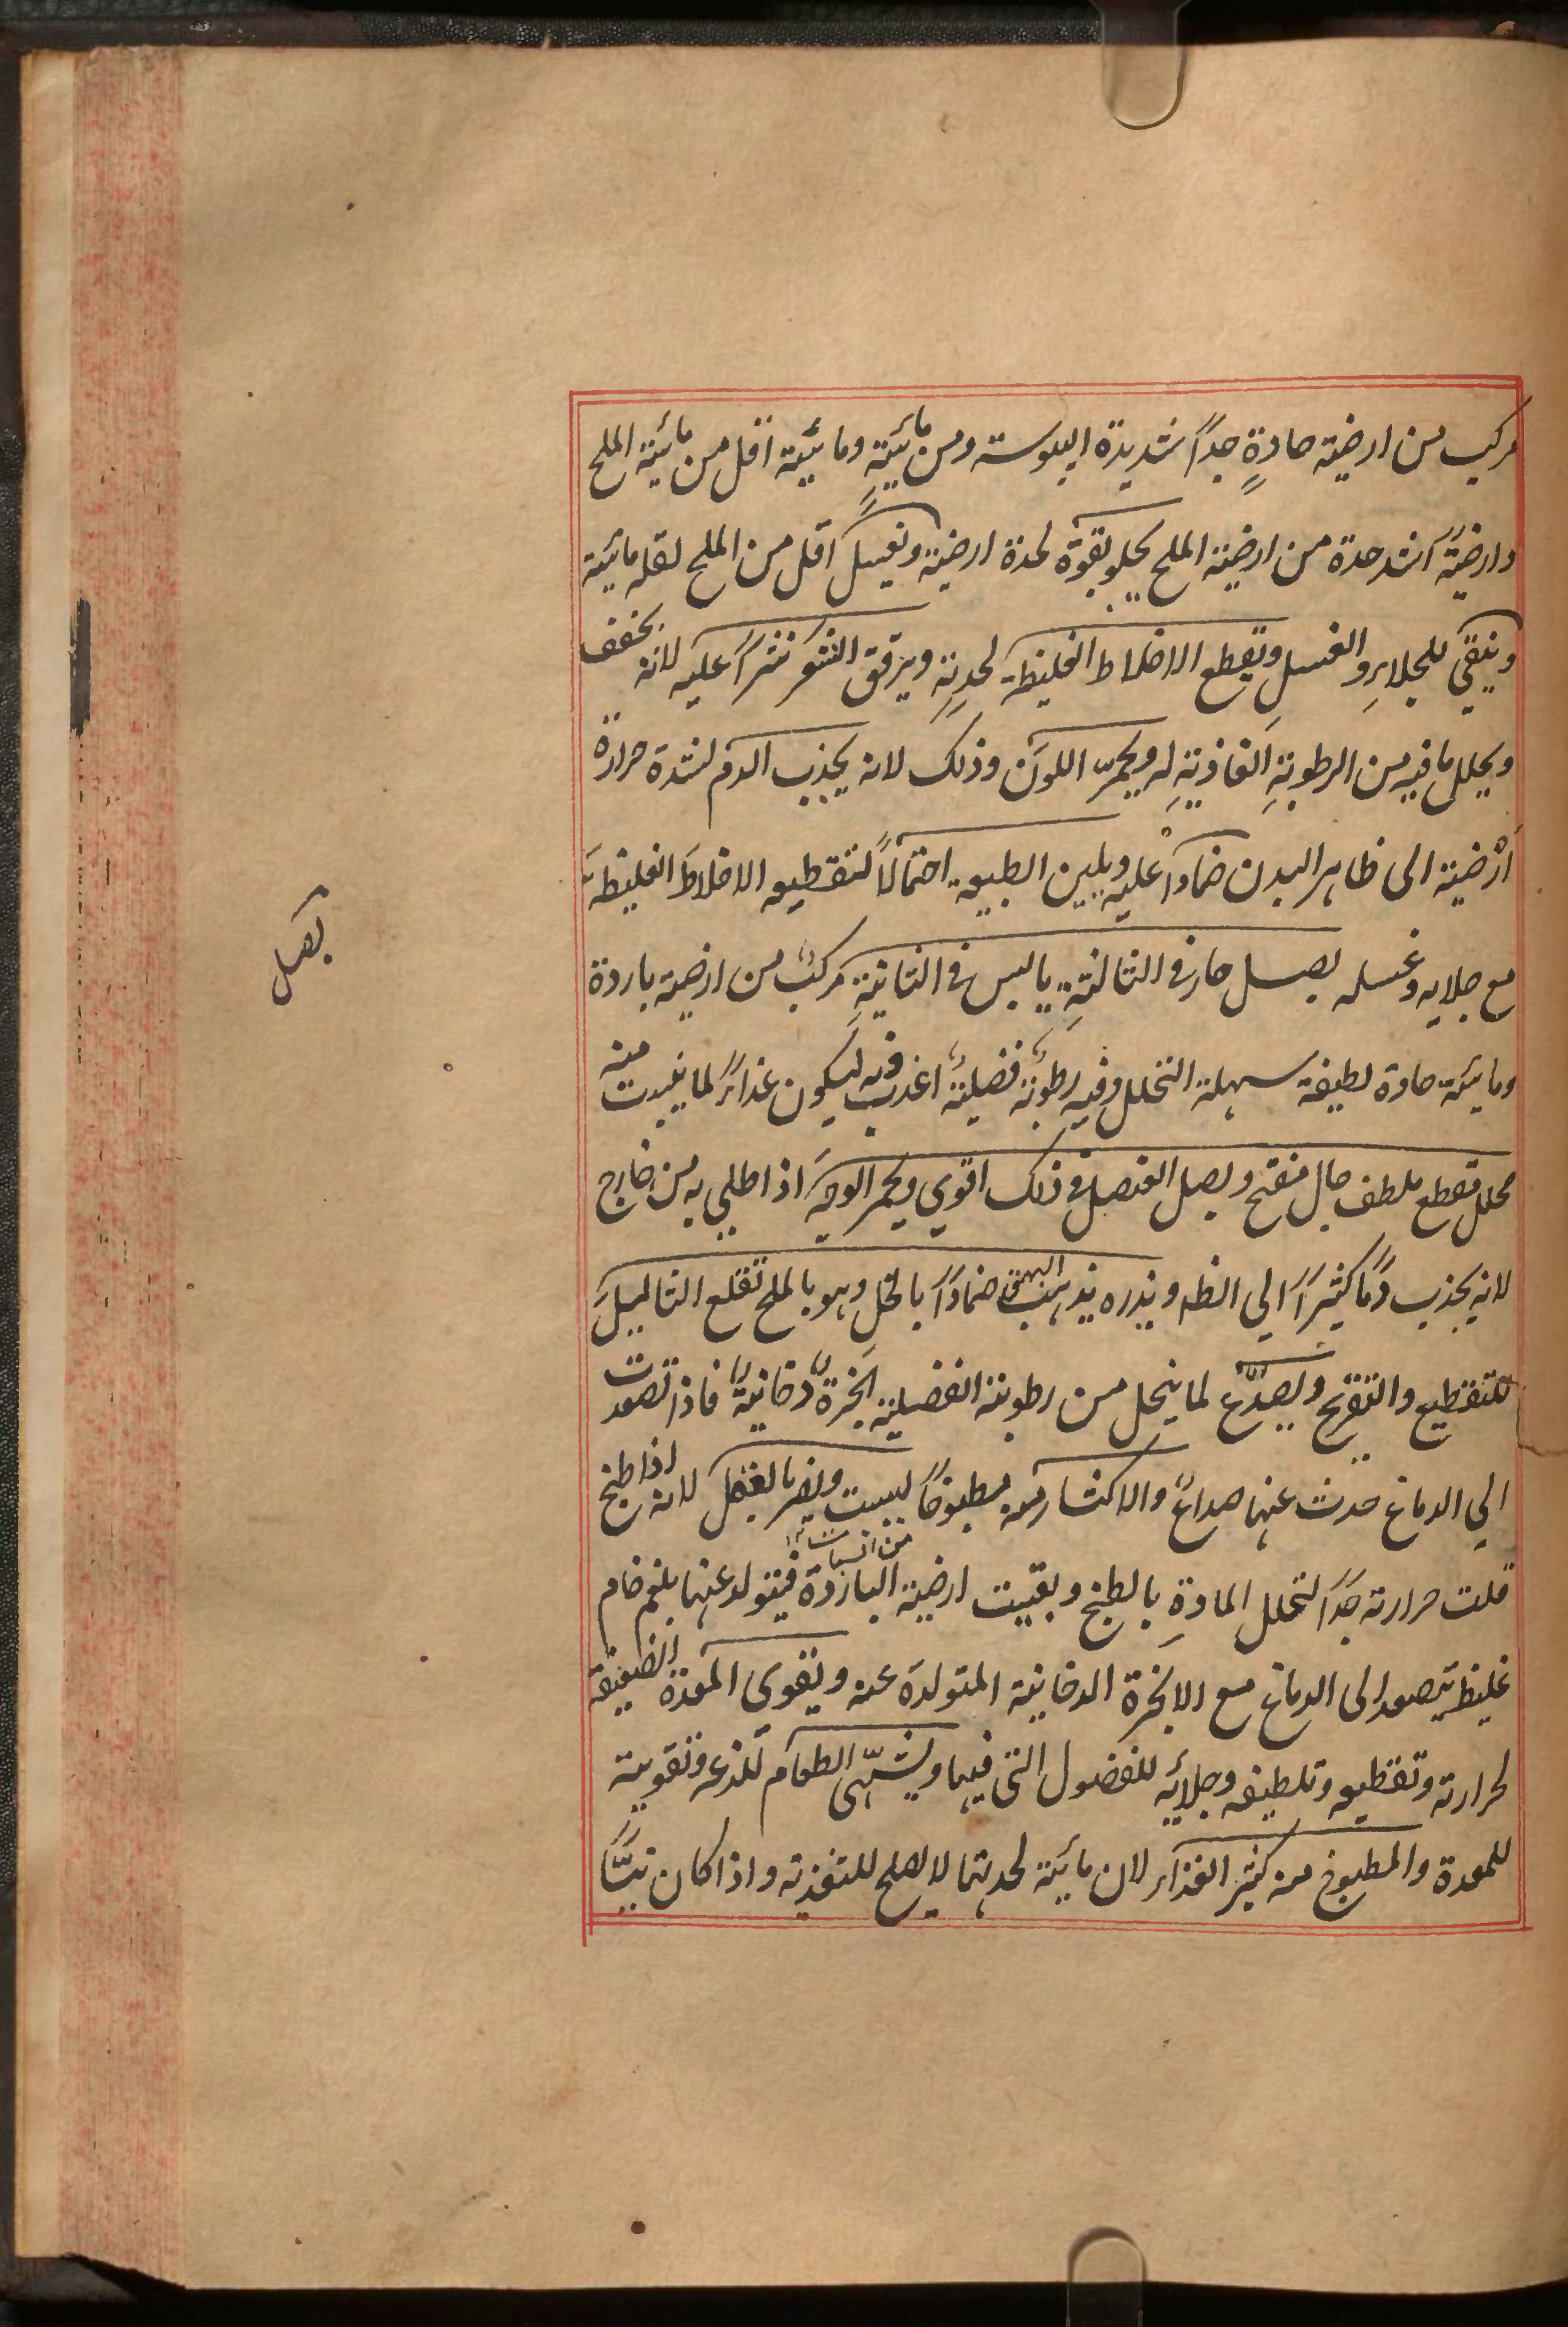 مركب من ارضية حادةٍ جداً شديدة اليبوسة ومن مائيةٍ ومائيتة اقل من مائية الملح
وارضيتهً اشد حدة من ارضية الملح يجلو بقوة لحدة ارضيته ويغسل اقل من الملح لقله مائيته
وينقي للجلاءِ والغسلِ ويقطع الاخلاط الغليظة لحدتِه ويرقق الشعر نثراً عليه لانه يخفف
ويحلل ما فيه من الرطوبةِ الغاذيةِ له ويحمرّ اللونَ وذلك لانه يجذب الدم لشدة حرارة
اَرْضيته الى ظاهر البدن ضماداً عليه ويلين الطبيعة احتمالاً لتقطيعه الاخلاطَ الغليظةَ
مع جلايه وغسله بصل حار في الثالثةِ يابس في الثانيةِ مركبٌ من ارضية باردة
ومائية حادة لطيفة سهلة التحلل وفيه رطوبةٌ فضليةٌ اعدت فيه ليكون غذاءً لما ينبت منه
محلل مقطع ملطف جال مفتح وبصل العنصل في ذلك اقوي ويحمر الوجهَ اذا طلي به من خارج
لانه يجذب دماً كثيراً الي الظه وبذره يذهب البهق ضماداً بالخلِ وهو بالملح تقلع الثاليلَ
للتقطيع والتقرح ويصدّع لما ينحل من رطوبته الفضلية ابخرةٌ دخانيةٌ فاذا تصعدت
الي الدماغ حدث عنها صداعٌ والاكثار منه مطبوخاً يسبت ويضر بالعقل لانه اذا طبخ
قلت حرارته جداً لتحلل المادةِ بالطبخ وبقيت ارضيته الباردة فيتولد عنها بلغم خام
غليظ يتصعد الى الدماغ مع الابخرة الدخانية المتولدة عنه ويقوى المعدة الضعيفة
لحرارته وتقطيعه وتلطيفه وجلائه للفضول التي فيها ويشهّى الطعام للذعه وتقويته
للمعدة والمطبوخ منه كثير الغذاء لان مائيته لحدتها لا يصلح للتغذية واذا كان نيّئًا
بصل